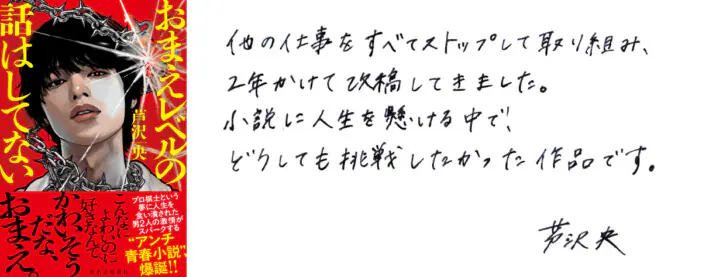 おまえレベルの
話はしてない
芦沢央
こんなに
よわいのに
好きなんて、
かわいそう
だな、
おまえ。
プロ棋士という
夢に人生を
食い潰された
男2人の激情が
スパークする
“アンチ
青春小説”、
爆誕!!
他の仕事をすべてストップして取り組み、
2年かけて改稿してきました。
小説に人生を懸ける中で、
どうしても挑戦したかった作品です。
芦沢央